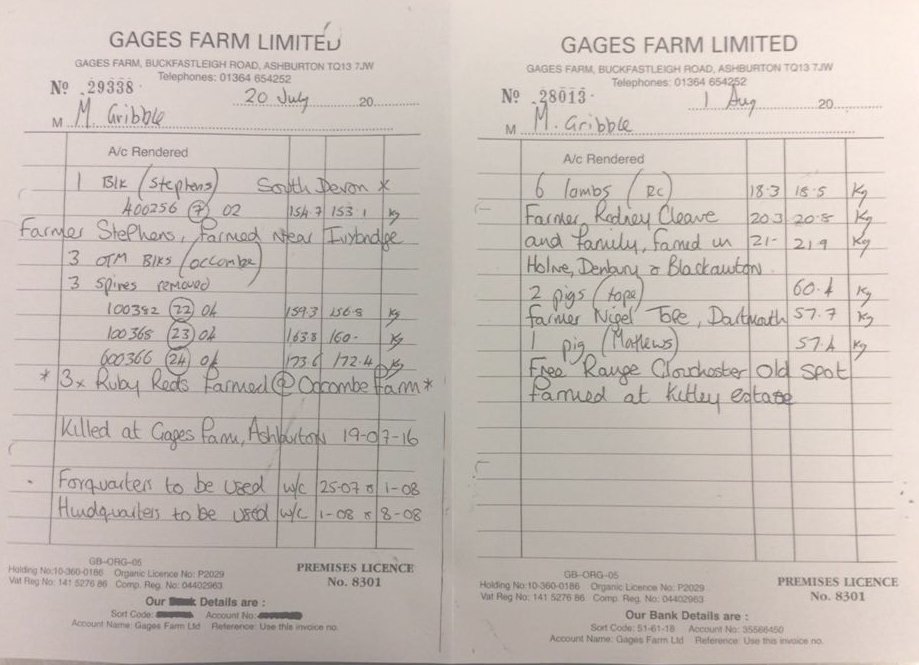 GAGES FARM LIMITED
GAGES FARM, BUCKFASTLEIGH ROAD, ASHBURTON TQ13 7JW
Telephones: 01364 654252
Nº 29338
20 July 20
M M. Gribble
A/c Rendered
1 Blk (Stephens) South Devon *
400256 (7) 02 154.7 153.1 kg
Farmer Stephens, Farmed Near Ivybridge
3 OTM Blks (occombe)
3 Spines removed
100382 (22) 04 159.3 156.8 kg
100368 (23) 04 163.8 160- kg
600366 (24) 04 173.6 172.4 kg
* 3x Ruby Reds Farmed @ Occombe Farm *
Killed at Gages Farm, Ashburton 19-07-16
Forquarters to be used w/c 25-07 & 1-08
Hindquarters to be used w/c 1-08 & 8-08
GB-ORG-05
Holding No:10-360-0186 Organic Licence No: P2029
Vat Reg No: 141 5276 86 Comp. Reg. No: 04402963
PREMISES LICENCE
No. 8301
Our Details are :
Sort Code: Account No:
Account Name: Gages Farm Ltd Reference: Use this invoice no.
GAGES FARM LIMITED
GAGES FARM, BUCKFASTLEIGH ROAD, ASHBURTON TQ13 7JW
Telephones: 01364 654252
Nº 28013
1 Aug 20
M M. Gribble
A/c Rendered
6 lambs (RC) 18.3 18.5 Kg
Farmer, Rodney Cleave 20.3 20.8 Kg
and Family, farmed in 21- 21.9 Kg
Holne, Denbury & Blackawton
2 pigs (tope) 60.4 Kg
farmer Nigel Tope, Dartmouth 57.7 Kg
1 pig (Mathews) 57.4 Kg
Free Range Glouchester Old Spot
farmed at Kitley estate
GB-ORG-05
Holding No:10-360-0186 Organic Licence No: P2029
Vat Reg No: 141 5276 86 Comp. Reg. No: 04402963
PREMISES LICENCE
No. 8301
Our Bank Details are :
Sort Code: 51-61-18 Account No: 35566450
Account Name: Gages Farm Ltd Reference: Use this invoice no.